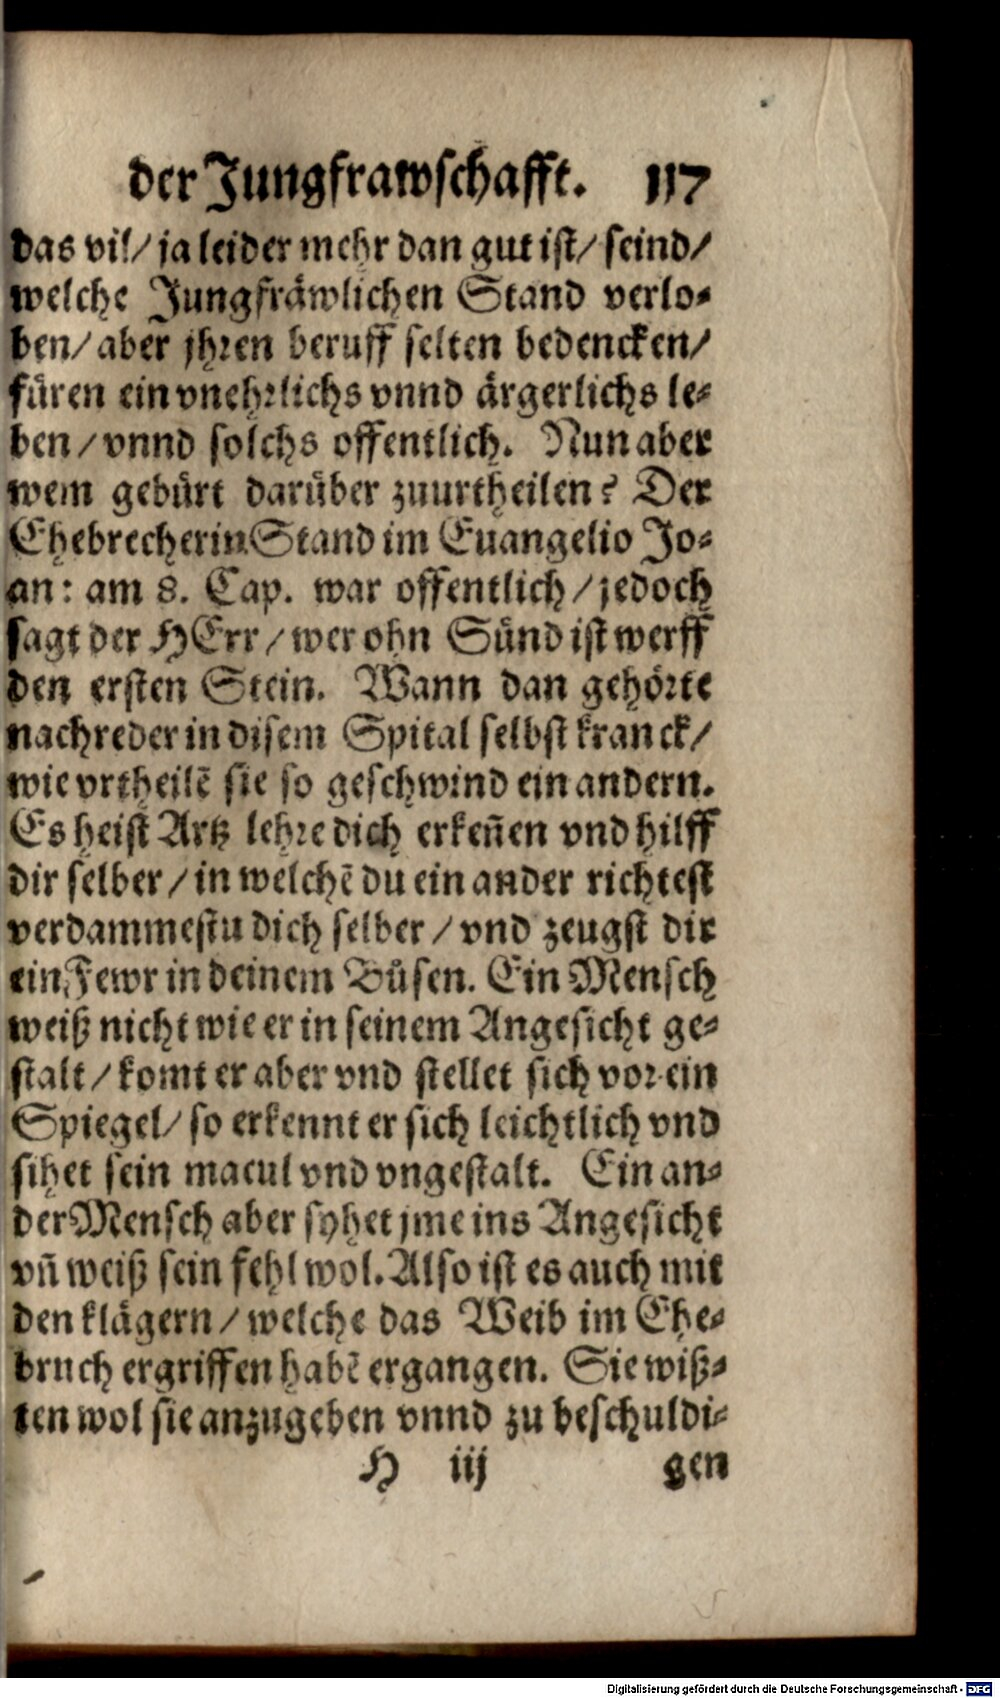 der Jungfrawschafft. 117
das vil/ ja leider mehr dan gut ist/ seind/
welche Jungfräwlichen Stand verlo-
ben/ aber jhren beruff selten bedencken/
füren ein vnehrlichs vnnd ärgerlichs le-
ben/ vnnd solchs offentlich. Nun aber
wem gebürt darüber zuurtheilen? Der
Ehebrecherin Stand im Euangelio Jo-
an: am 8. Cap. war offentlich/ jedoch
sagt der HErr/ wer ohn Sünd ist werff
den ersten Stein. Wann dan gehörte
nachreder in disem Spital selbst kranck/
wie vrtheilē sie so geschwind ein andern.
Es heist Artz lehre dich erkeñen vnd hilff
dir selber/ in welchē du ein ander richtest
verdammestu dich selber/ vnd zeugst dir
ein Fewr in deinem Büsen. Ein Mensch
weiß nicht wie er in seinem Angesicht ge-
stalt/ komt er aber vnd stellet sich vor ein
Spiegel/ so erkennt er sich leichtlich vnd
sihet sein macul vnd vngestalt. Ein an-
der Mensch aber syhet jme ins Angesicht
vñ weiß sein fehl wol. Also ist es auch mit
den klägern/ welche das Weib im Ehe-
bruch ergriffen habē ergangen. Sie wiß-
ten wol sie anzugeben vnnd zu beschuldi-
H iij gen
Digitalisierung gefördert durch die Deutsche Forschungsgemeinschaft - DFG